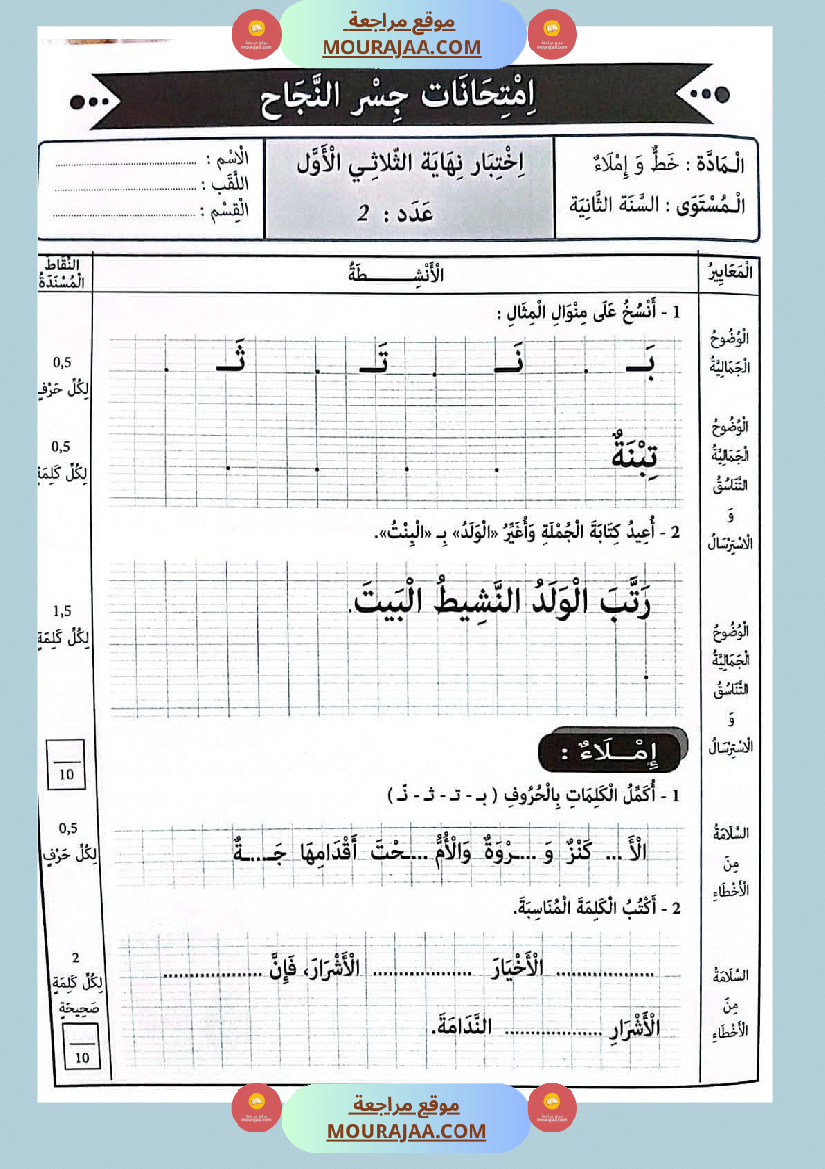 موقع مراجعة
MOURAJAA.COM
اِمْتِحَانَات جِسْر النَّجَاح
الْـمَادَّة : خَطٌّ وَ إِمْلَاءٌ
الْـمُسْتَوَى : السَّنَة الثَّانِيَة
اِخْتِبَار نِهَايَة الثّلاثِـي الْأَوَّل
عَدَد : 2
الْاِسْم : ........................
اللَّقَب : ........................
الْقِسْم : ........................
الْمَعَايِيرُ
الْأَنْشِـــــــطَةُ
النُّقَاطُ الْمُسْنَدَةُ
1 - أَنْسُخُ عَلَى مِنْوَالِ الْمِثَالِ :
الْوُضُوحُ
الْجَمَالِيَّةُ
بَـ . نَـ . تَـ . ثَـ .
0,5
لِكُلِّ حَرْفٍ
الْوُضُوحُ
الْجَمَالِيَّةُ
التَّنَاسُقُ
وَ
الْاِسْتِرْسَالُ
تِبْنَةٌ . . . .
0,5
لِكُلِّ كَلِمَةٍ
2 - أُعِيدُ كِتَابَةَ الْجُمْلَةِ وَأُغَيِّرُ «الْوَلَدُ» بِـ «الْبِنْتُ».
رَتَّبَ الْوَلَدُ النَّشِيطُ الْبَيتَ.
.
1,5
لِكُلِّ كَلِمَةٍ
الْوُضُوحُ
الْجَمَالِيَّةُ
التَّنَاسُقُ
وَ
الْاِسْتِرْسَالُ
10
إِمْــلَاءٌ :
1 - أُكَمِّلُ الْكَلِمَاتِ بِالْحُرُوفِ ( بـ - تـ - ثـ - نـَ )
السَّلَامَةُ
مِنَ
الْأَخْطَاءِ
الْأَ ... كَنْزٌ وَ ....ـرْوَةٌ وَالْأُمُّ ....ـحْتَ أَقْدَامِهَا جَـ....ـةٌ
0,5
لِكُلِّ حَرْفٍ
2 - أَكْتُبُ الْكَلِمَةَ الْمُنَاسِبَةَ.
................... الْأَخْيَارَ ................... الْأَشْرَارَ، فَإِنَّ ...................
الْأَشْرَارِ ................... النَّدَامَةَ.
السَّلَامَةُ
مِنَ
الْأَخْطَاءِ
2
لِكُلِّ كَلِمَةٍ
صَحِيحَةٍ
10
موقع مراجعة
MOURAJAA.COM